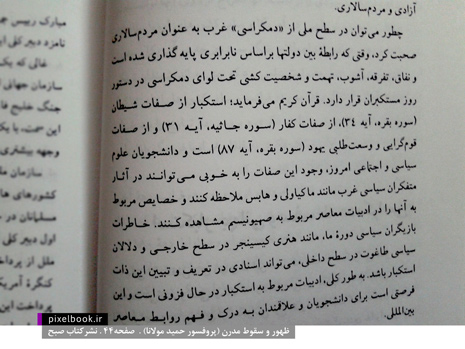 آزادی و مردم‌سالاری.
چطور می‌توان در سطح ملی از «دمکراسی» غرب به عنوان مردم‌سالاری
صحبت کرد، وقتی که رابطهٔ بین دولتها براساس نابرابری پایه گذاری شده است
و نفاق، تفرقه، آشوب، تهمت و شخصیت کشی تحت لوای دمکراسی در دستور
روز مستکبران قرار دارد. قرآن کریم می‌فرماید: استکبار از صفات شیطان
(سوره بقره، آیه ۳۴)، از صفات کفار (سوره جاثیه، آیه ۳۱) و از صفات
قوم‌گرایی و وسعت‌طلبی یهود (سوره بقره، آیه ۸۷) است و دانشجویان علوم
سیاسی و اجتماعی امروز، وجود این صفات را به خوبی می‌توانند در آثار
متفکران سیاسی غرب مانند ماکیاولی و هابس ملاحظه کنند و خصایص مربوط
به آنها را در ادبیات معاصر مربوط به صهیونیسم مشاهده کنند. خاطرات
بازیگران سیاسی دورهٔ ما، مانند هنری کیسینجر در سطح خارجی و دلالان
سیاسی طاغوت در سطح داخلی، می‌تواند اسنادی در تعریف و تبیین این ذات
استکبار باشد. به طور کلی، ادبیات مربوط به استکبار در حال فزونی است و این
فرصتی است برای دانشجویان و علاقمندان به درک و فهم روابط معاصر
بین‌المللی.
مبارک رییس جم
نامزد دبیر کلی ا
غالی که یک
سازمان جهانی
جنگ خلیج فا
این سمت، با یک
وجهه بیشتری
کشورهای ها
مسلمانان در
اول دبیر کلی
ملل از پرداخت
کنگرهٔ آمریک
پرداخت این
pixelbook.ir
ظهور و سقوط مدرن (پروفسور حمید مولانا) . صفحه۴۲ . نشرکتاب صبح